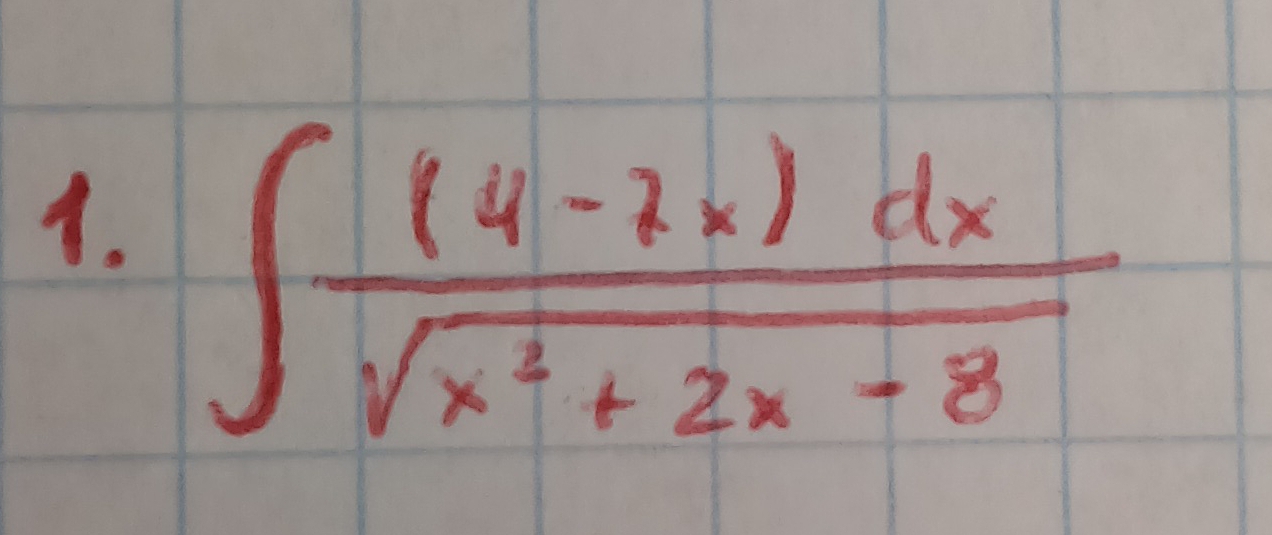 1. ∫ (4 - 7x) dx / √(x² + 2x - 8)